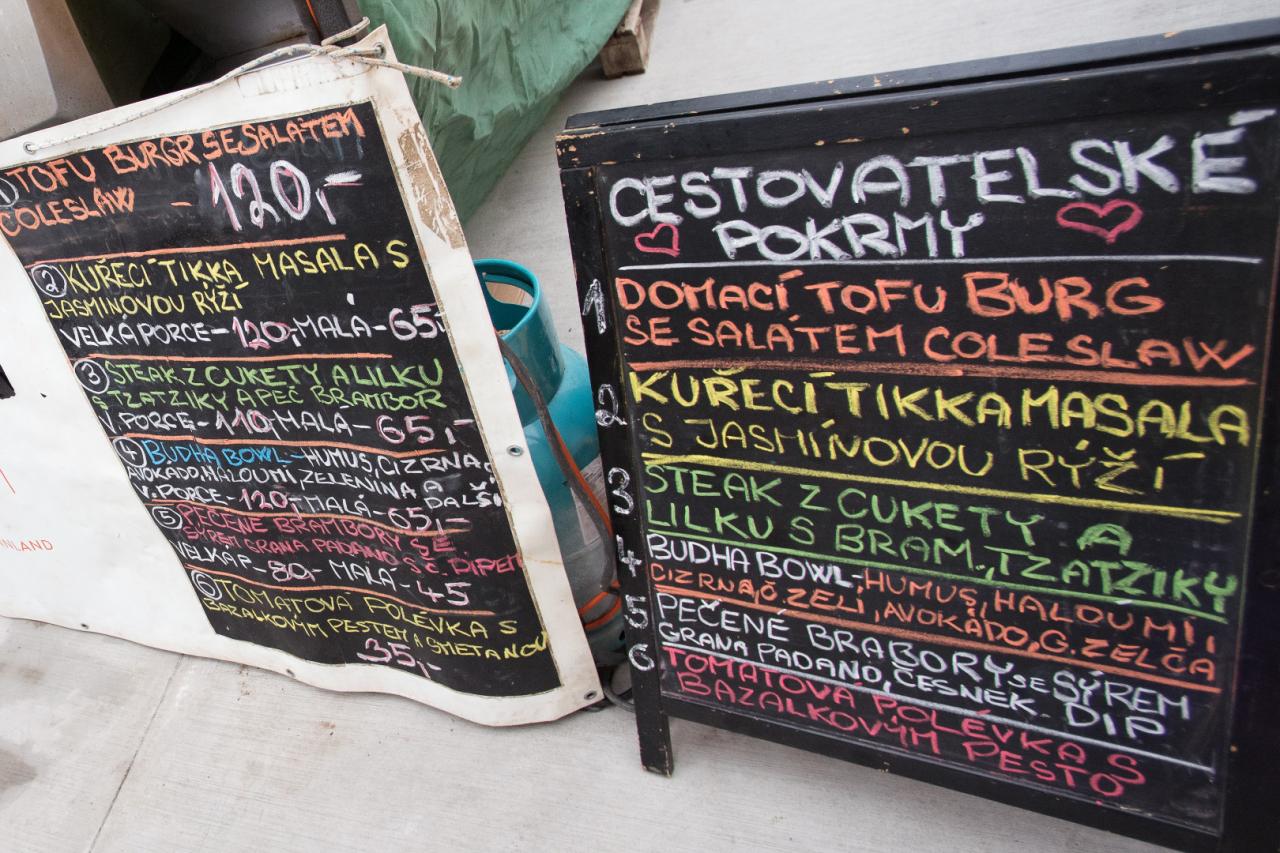 1 TOFU BURGR SE SALATEM
COLESLAW - 120,-
2 KUŘECÍ TIKKA MASALA S
JASMINOVOU RÝŽÍ
VELKÁ PORCE - 120,- MALÁ - 65,-
3 STEAK Z CUKETY A LILKU
S TZATZIKY A PEČ BRAMBOR
V. PORCE - 110,- MALÁ - 65,-
4 BUDHA BOWL - HUMUS, CIZRNA,
AVOKÁDO, HALOUMI, ZELENINA A DALŠÍ
V. PORCE - 120,- MALÁ - 65,-
5 PEČENÉ BRAMBORY SE
SÝREM GRANA PADANO S Č. DIPEM
VELKÁ P - 80,- MALÁ - 45
6 TOMATOVÁ POLÉVKA S
BAZALKOVÝM PESTEM A SMETANOU
35,-
INLAND
CESTOVATELSKÉ
POKRMY
1 DOMACÍ TOFU BURG
SE SALÁTEM COLESLAW
2 KUŘECÍ TIKKA MASALA
S JASMÍNOVOU RÝŽÍ
3 STEAK Z CUKETY A
LILKU S BRAM., TZATZIKY
4 BUDHA BOWL, HUMUS, HALOUMI,
CIZRNA, Č. ZELÍ, AVOKÁDO, G. ZELČA
5 PEČENÉ BRABORY SE SÝREM
GRANA PADANO, ČESNEK. DIP
6 TOMATOVA POLÉVKA S
BAZALKOVÝM PESTO